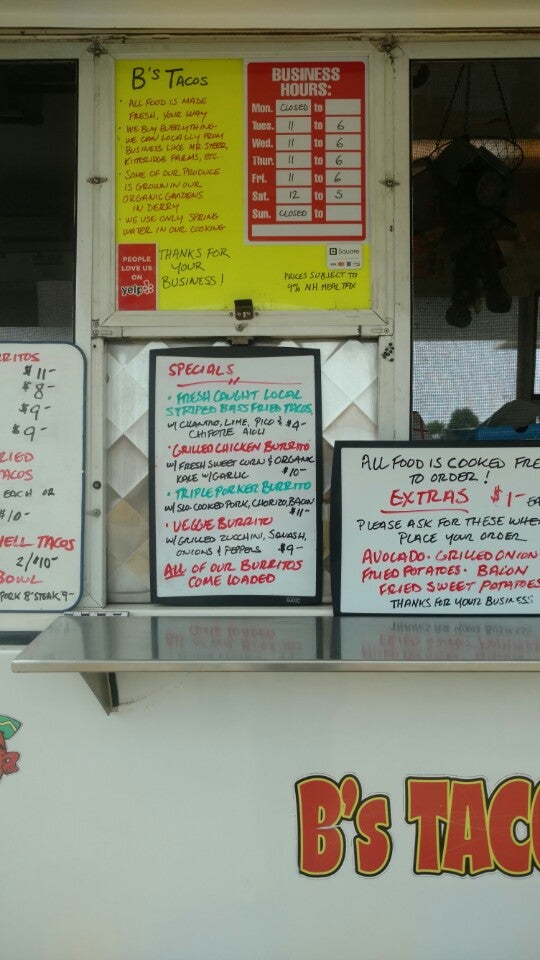 B's TACOS
· ALL FOOD IS MADE
FRESH, YOUR WAY
· WE BUY EVERYTHING
WE CAN LOCALLY FROM
BUSINESS LIKE MR. STEER,
KITTERIDGE FARMS, ETC.
· SOME OF OUR PRODUCE
IS GROWN IN OUR
ORGANIC GARDENS
IN DERRY
· WE USE ONLY SPRING
WATER IN OUR COOKING
PEOPLE
LOVE US
ON
yelp
THANKS FOR
YOUR
BUSINESS!
BUSINESS
HOURS:
Mon. CLOSED to
Tues. 11 to 6
Wed. 11 to 6
Thur. 11 to 6
Fri. 11 to 6
Sat. 12 to 5
Sun. CLOSED to
Square
PRICES SUBJECT TO
9% NH MEAL TAX
RRITOS
$11-
$8-
$9-
$9-
RIED
ACOS
EACH OR
$10-
HELL TACOS
2/$10-
BOWL
PORK 8 STEAK 9-
SPECIALS
· FRESH CAUGHT LOCAL
STRIPED BASS FRIED TACOS
W/ CILANTRO, LIME, PICO & $4-
CHIPOTLE AIOLI
· GRILLED CHICKEN BURRITO
W/ FRESH SWEET CORN & ORGANIC
KALE W/GARLIC $10-
· TRIPLE PORKER BURRITO
W/ SLO-COOKED PORK, CHORIZO, BACON
$11-
· VEGGIE BURRITO
W/ GRILLED ZUCCHINI, SQUASH,
ONIONS & PEPPERS $9-
ALL OF OUR BURRITOS
COME LOADED
ALL FOOD IS COOKED FRE
TO ORDER!
EXTRAS $1- EA
PLEASE ASK FOR THESE WHE
PLACE YOUR ORDER
AVOCADO · GRILLED ONION
FRIED POTATOES · BACON
FRIED SWEET POTATOES
THANKS FOR YOUR BUSINESS
B's TACO